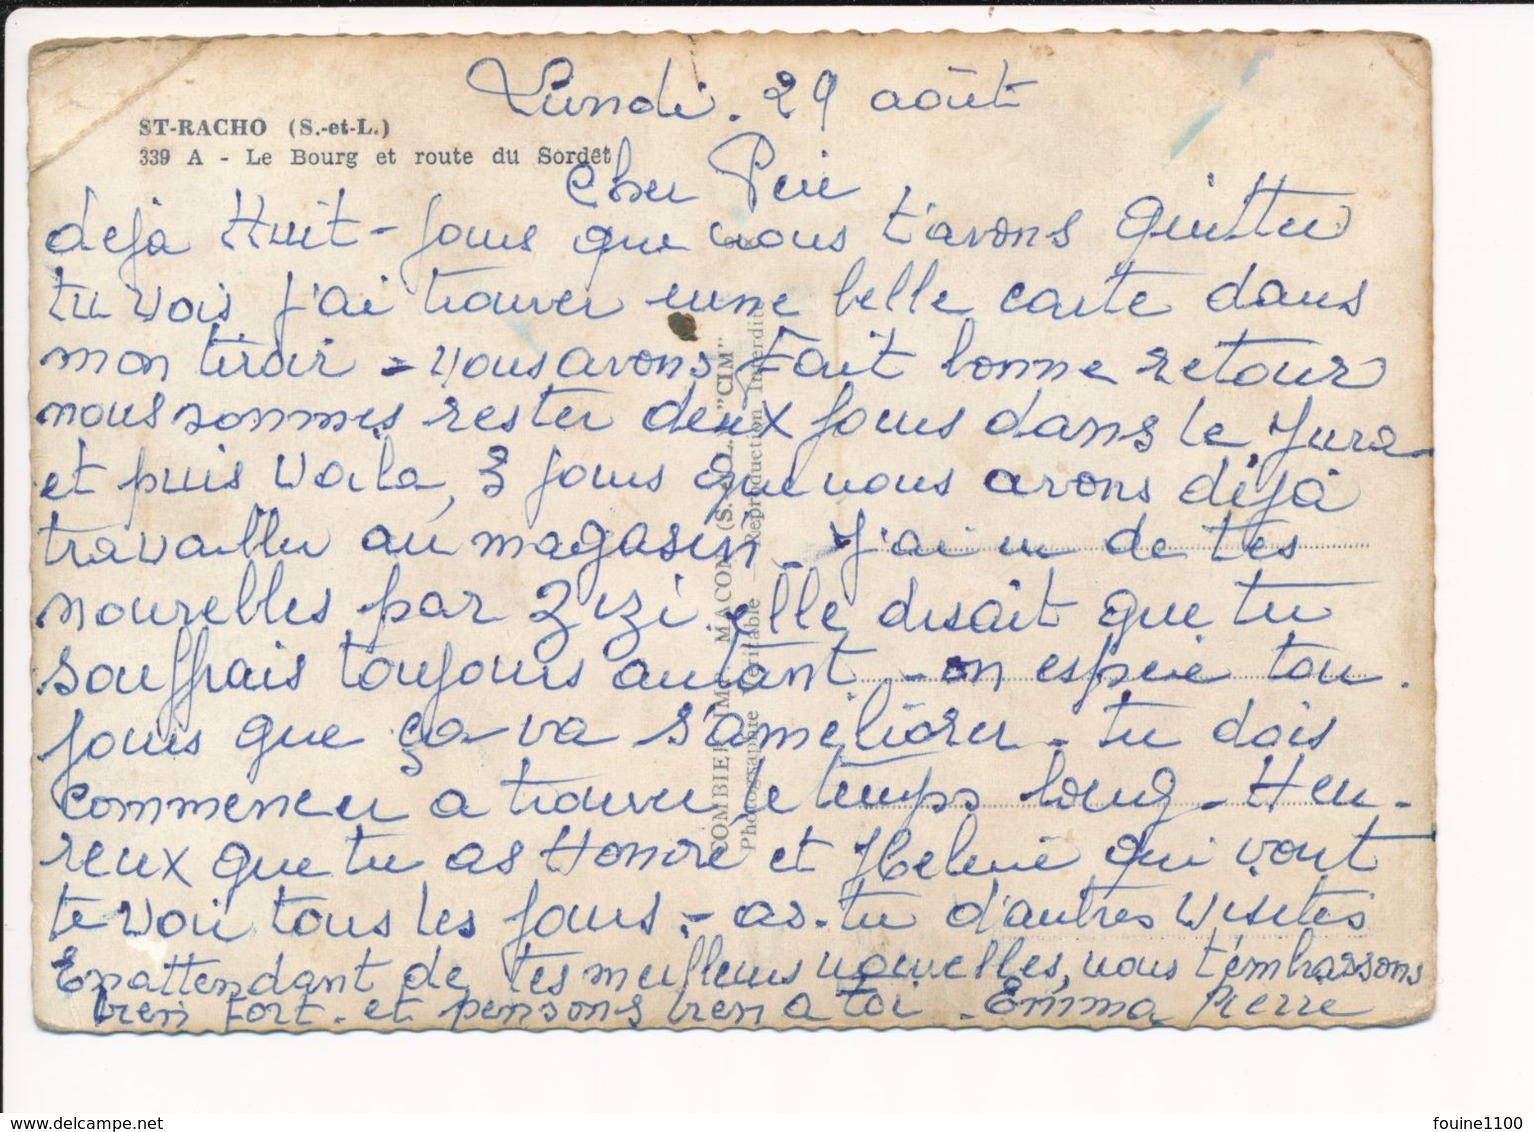 Lundi. 29 août
ST-RACHO (S.-et-L.)
339 A - Le Bourg et route du Sordet
Cher Père
deja Huit-jours que nous t'avons quitter
tu vois j'ai trouver une belle carte dans
mon tiroir - nous avons Fait bonne retour
nous sommes rester deux jours dans le Jura
et puis voila, 3 jours que nous avons déjà
travailler au magasin - J'ai eu de tes
nouvelles par Zizi, elle disait que tu
souffrais toujours autant - on espère tou-
jours que ça va s'améliorer - tu dois
commencer a trouver le temps long - Heu-
reux que tu as Honoré et Helene qui vont
te voir tous les jours - as-tu d'autres visites
En attendant de tes meilleurs nouvelles, nous t'embrassons
bien Fort. et pensons bien a toi - Emma Pierre
COMBIER IMP. MACON (S.-et-L.) "CIM"
Photographie véritable - Reproduction interdite
fouine1100
delcampe.net